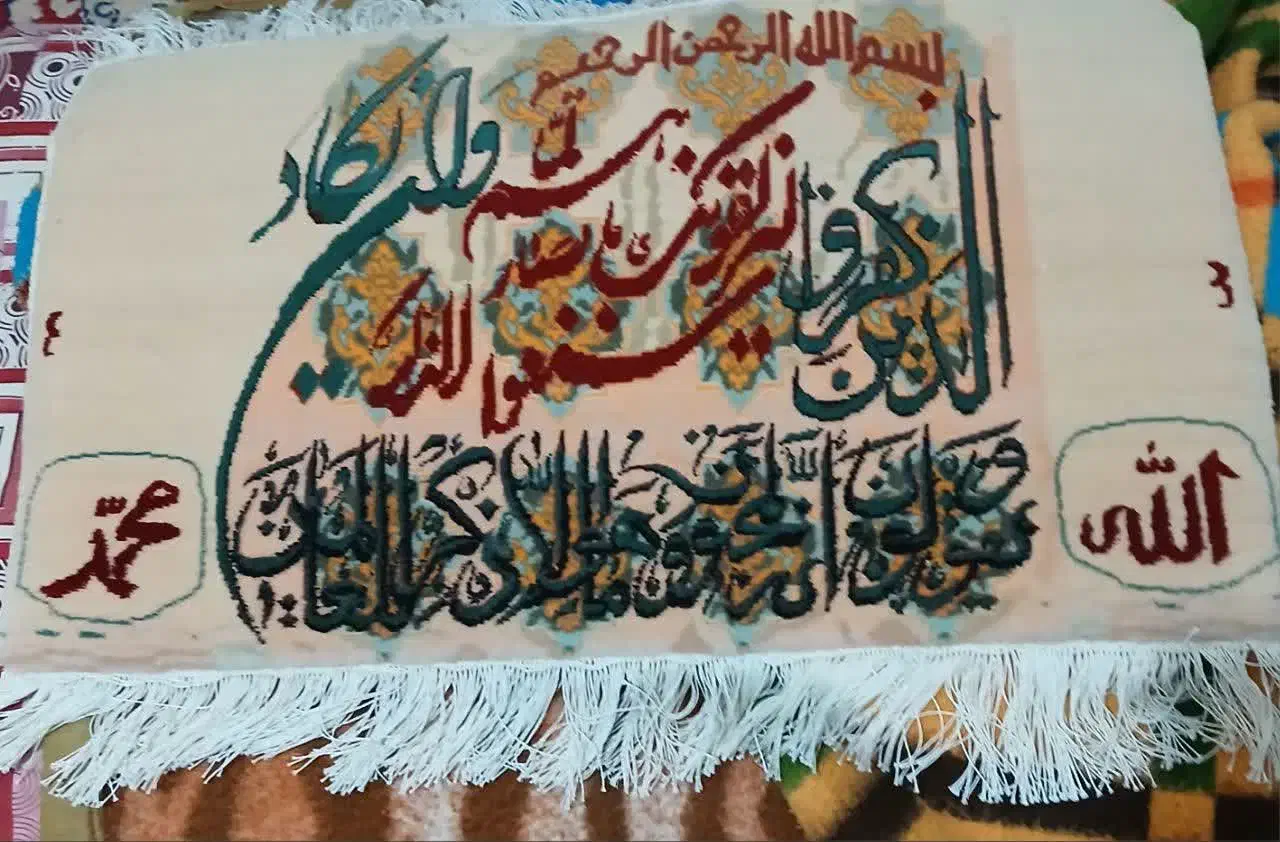 بسم الله الرحمن الرحیم
وان یکاد
الذین کفروا
لیزلقونک بابصارهم لما
سمعوا الذکر
ویقولون انه لمجنون وما هو الا ذکر للعالمین
الله
محمد